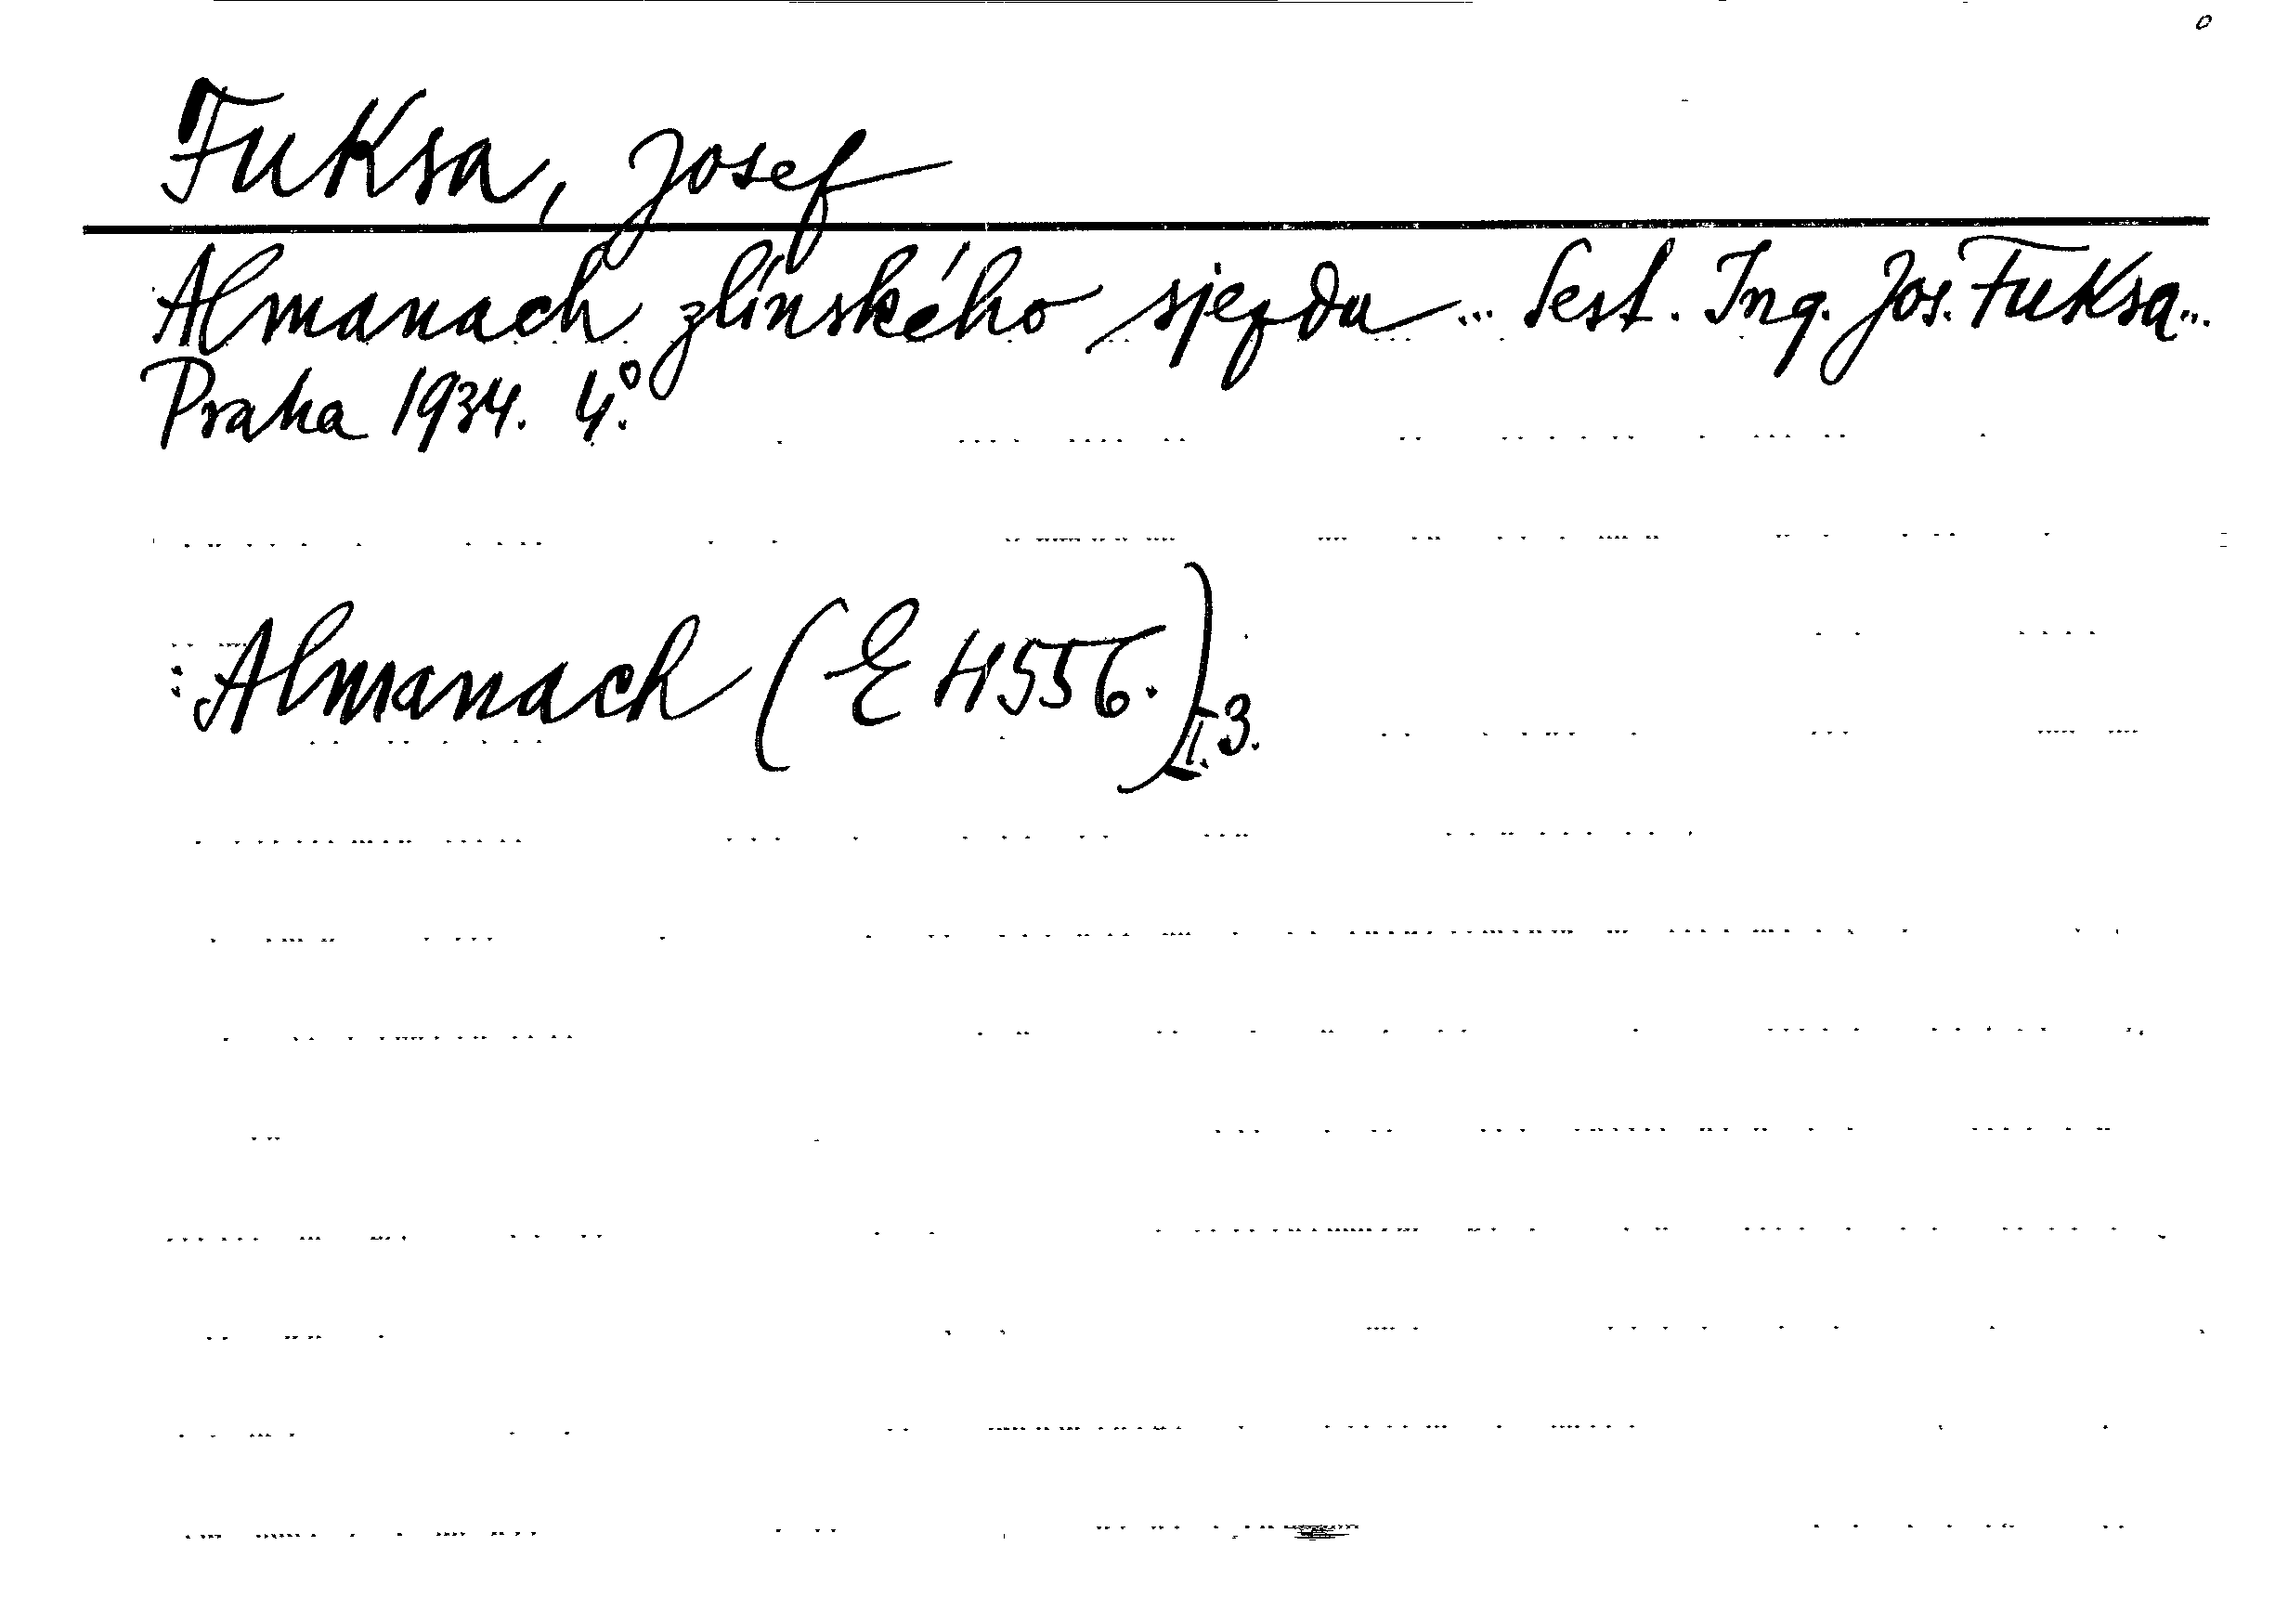 Fuksa, Josef
Almanach zlínského sjezdu... Sest. Ing. Jos. Fuksa...
Praha 1934. 4°.
: Almanach (E 4556.) I.3.